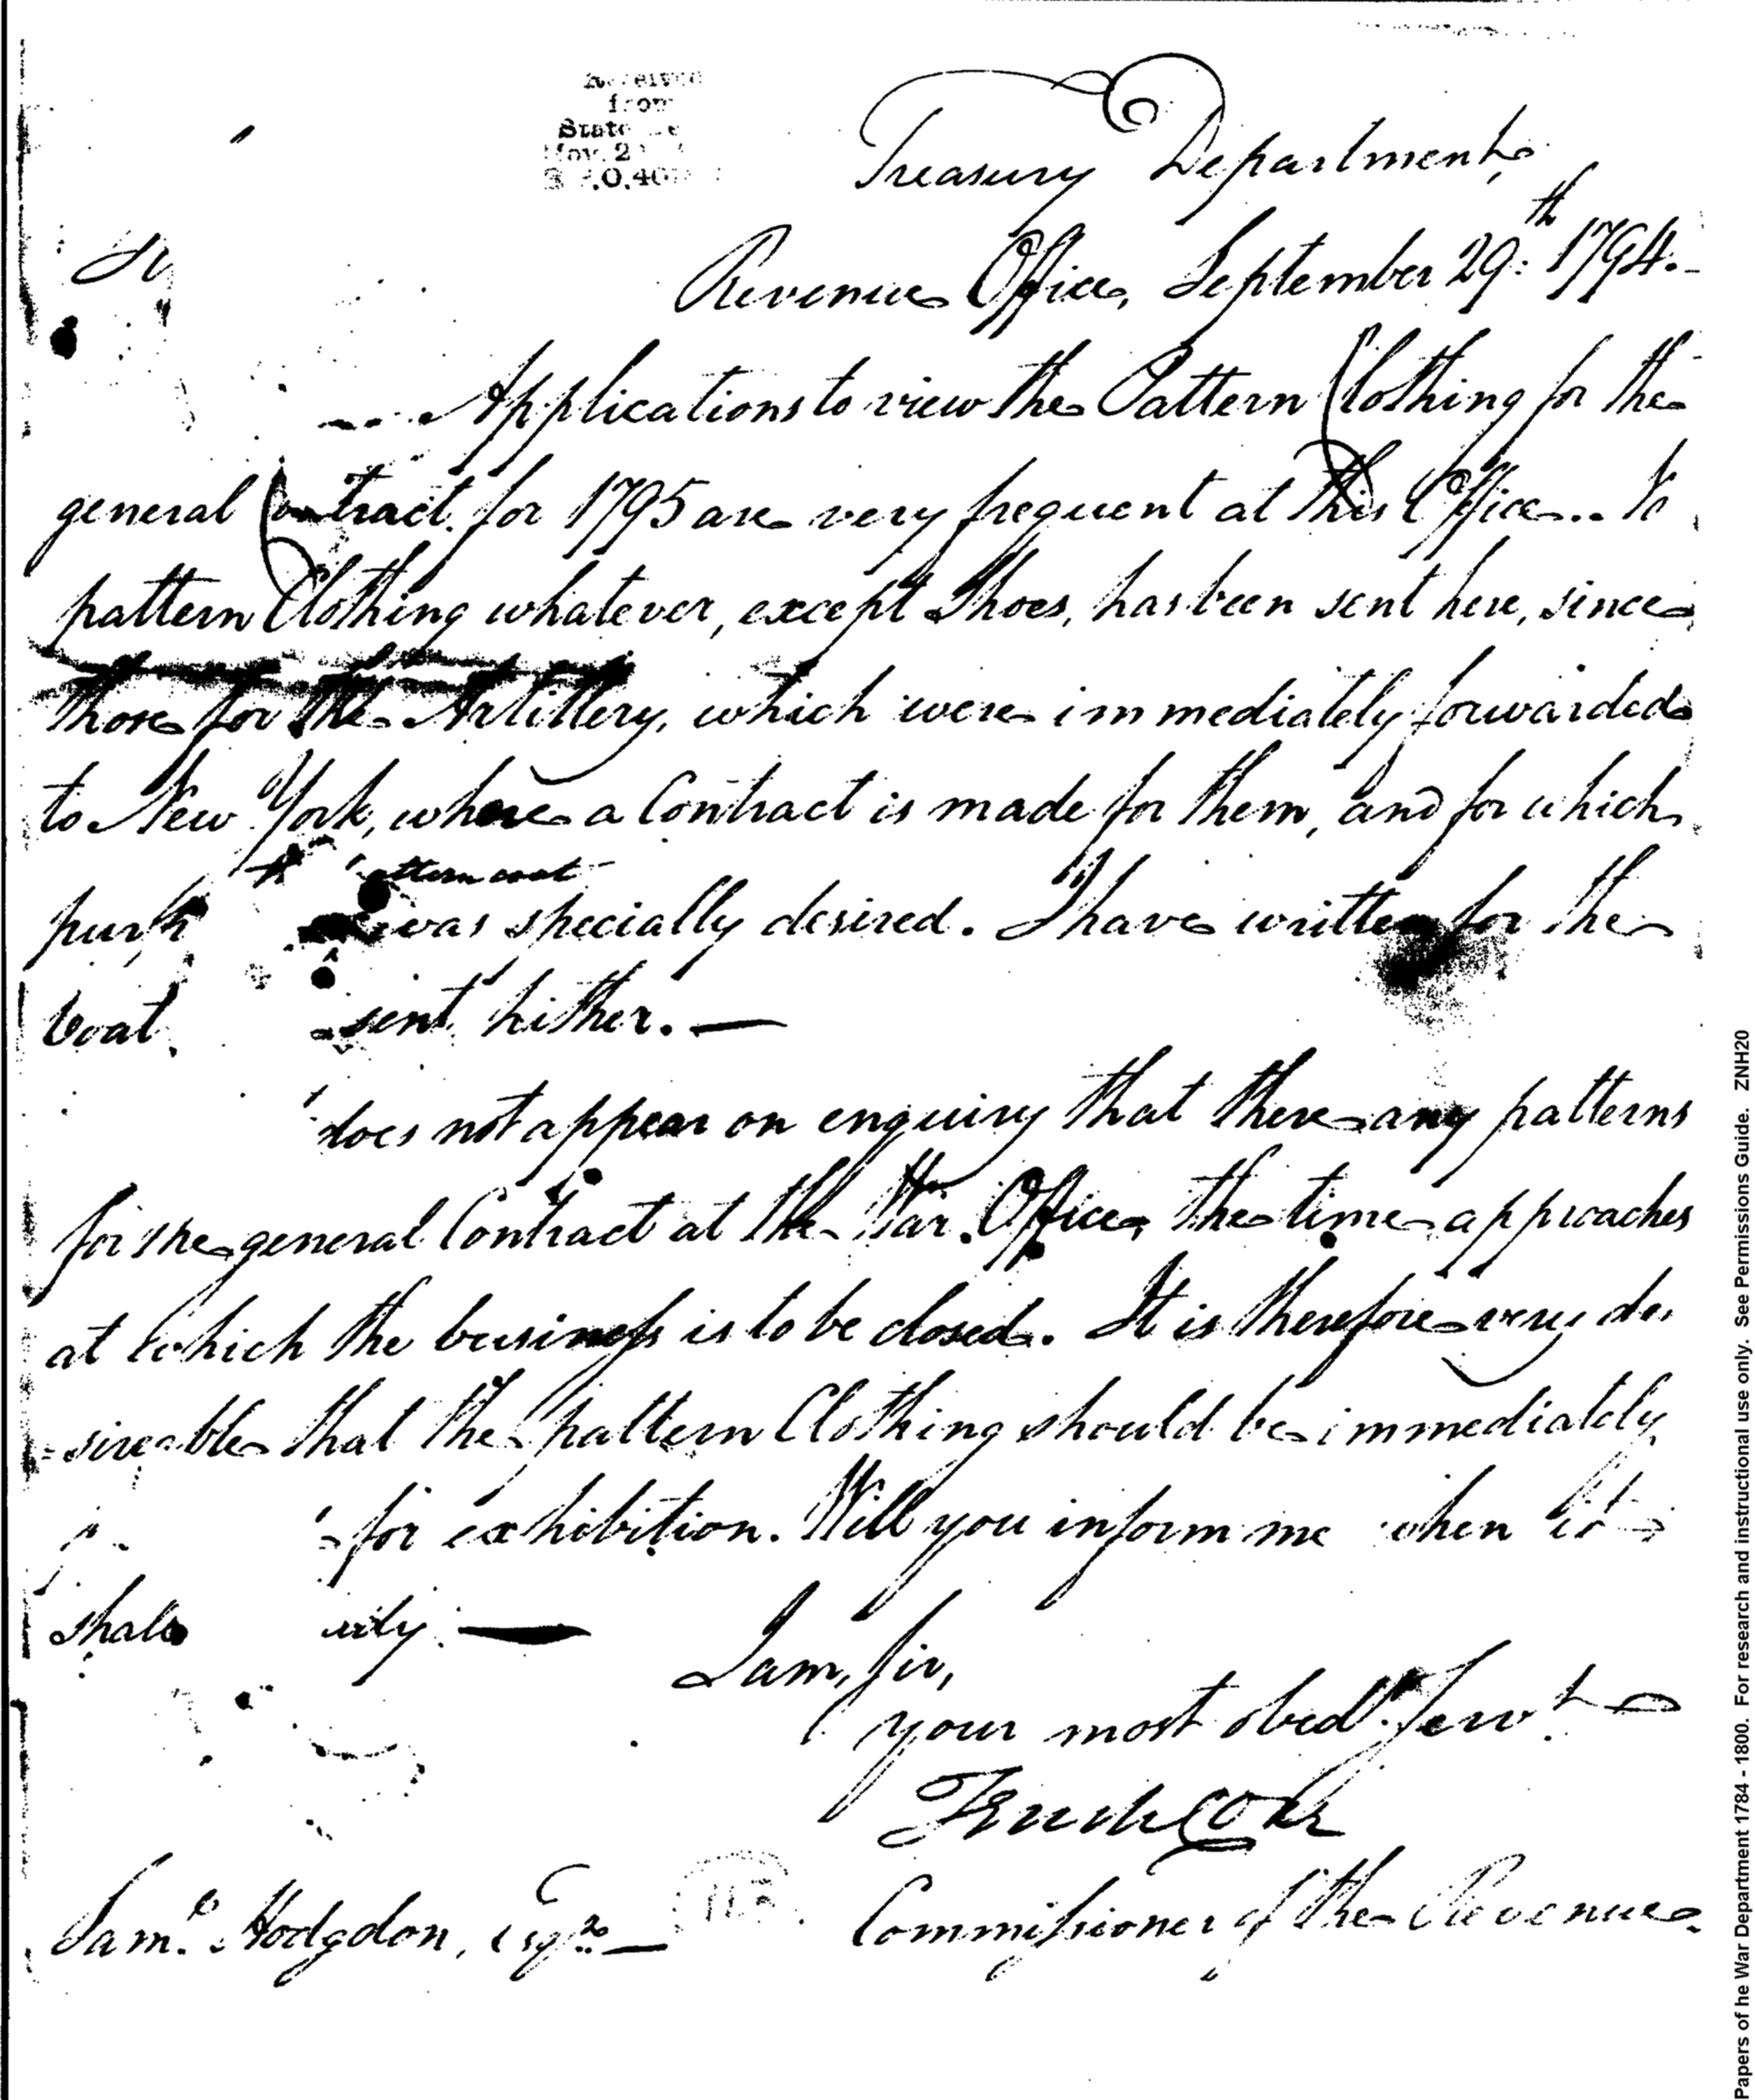 Received
from
State
Nov. 2
Treasury Department,
Revenue Office, September 29:th 1794.
Applications to view the Pattern Clothing for the
general Contract for 1795 are very frequent at this Office... No
pattern Clothing whatever, except Shoes, has been sent here, since
those for the Artillery, which were immediately forwarded
to New York, where a Contract is made for them, and for which
pattern coat
was specially desired. I have written for the
Coat sent hither. —
does not appear on enquiry that there any patterns
for the general Contract at the War Office, the time approaches
at which the business is to be closed. It is therefore very de
=sireable that the pattern Clothing should be immediately
for exhibition. Will you inform me when it
shall
I am, Sir,
your most obed.t Serv.t
Tench Coxe
Commissioner of the Revenue
Sam.l Hodgdon, Esqr. —
Papers of he War Department 1784 - 1800. For research and instructional use only. See Permissions Guide. ZNH20